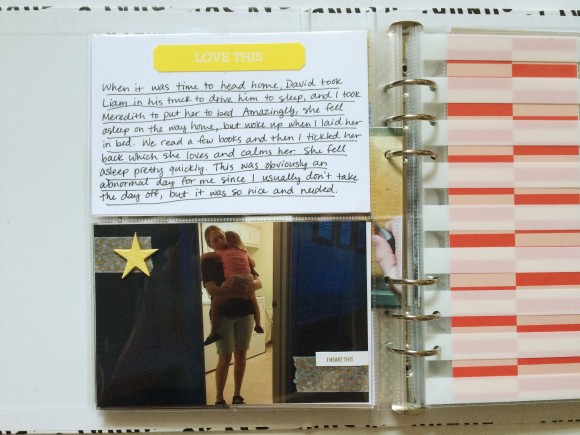 LOVE THIS
When it was time to head home, David took
Liam in his truck to drive him to sleep, and I took
Meredith to put her to bed. Amazingly, she fell
asleep on the way home, but woke up when I laid her
in bed. We read a few books and then I tickled her
back which she loves and calms her. She fell
asleep pretty quickly. This was obviously an
abnormal day for me since I usually don't take
the day off, but it was so nice and needed.
I HEART THIS